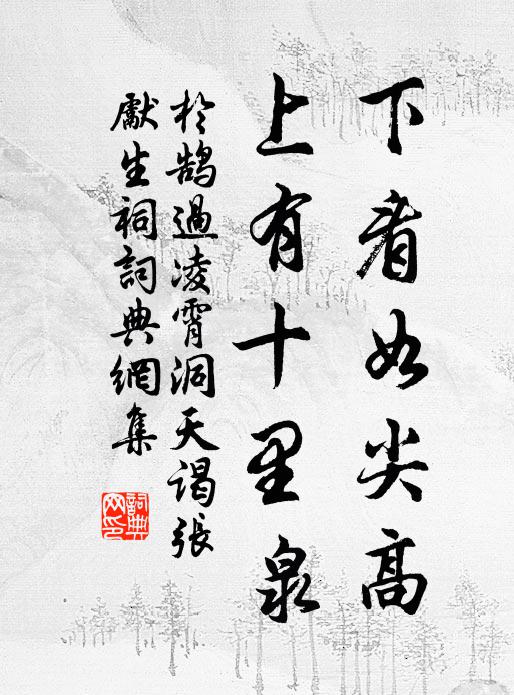 下看如尖高
上有十里泉
於鵠過凌霄洞天谒張
獻生祠詞典網集
詞典
网印